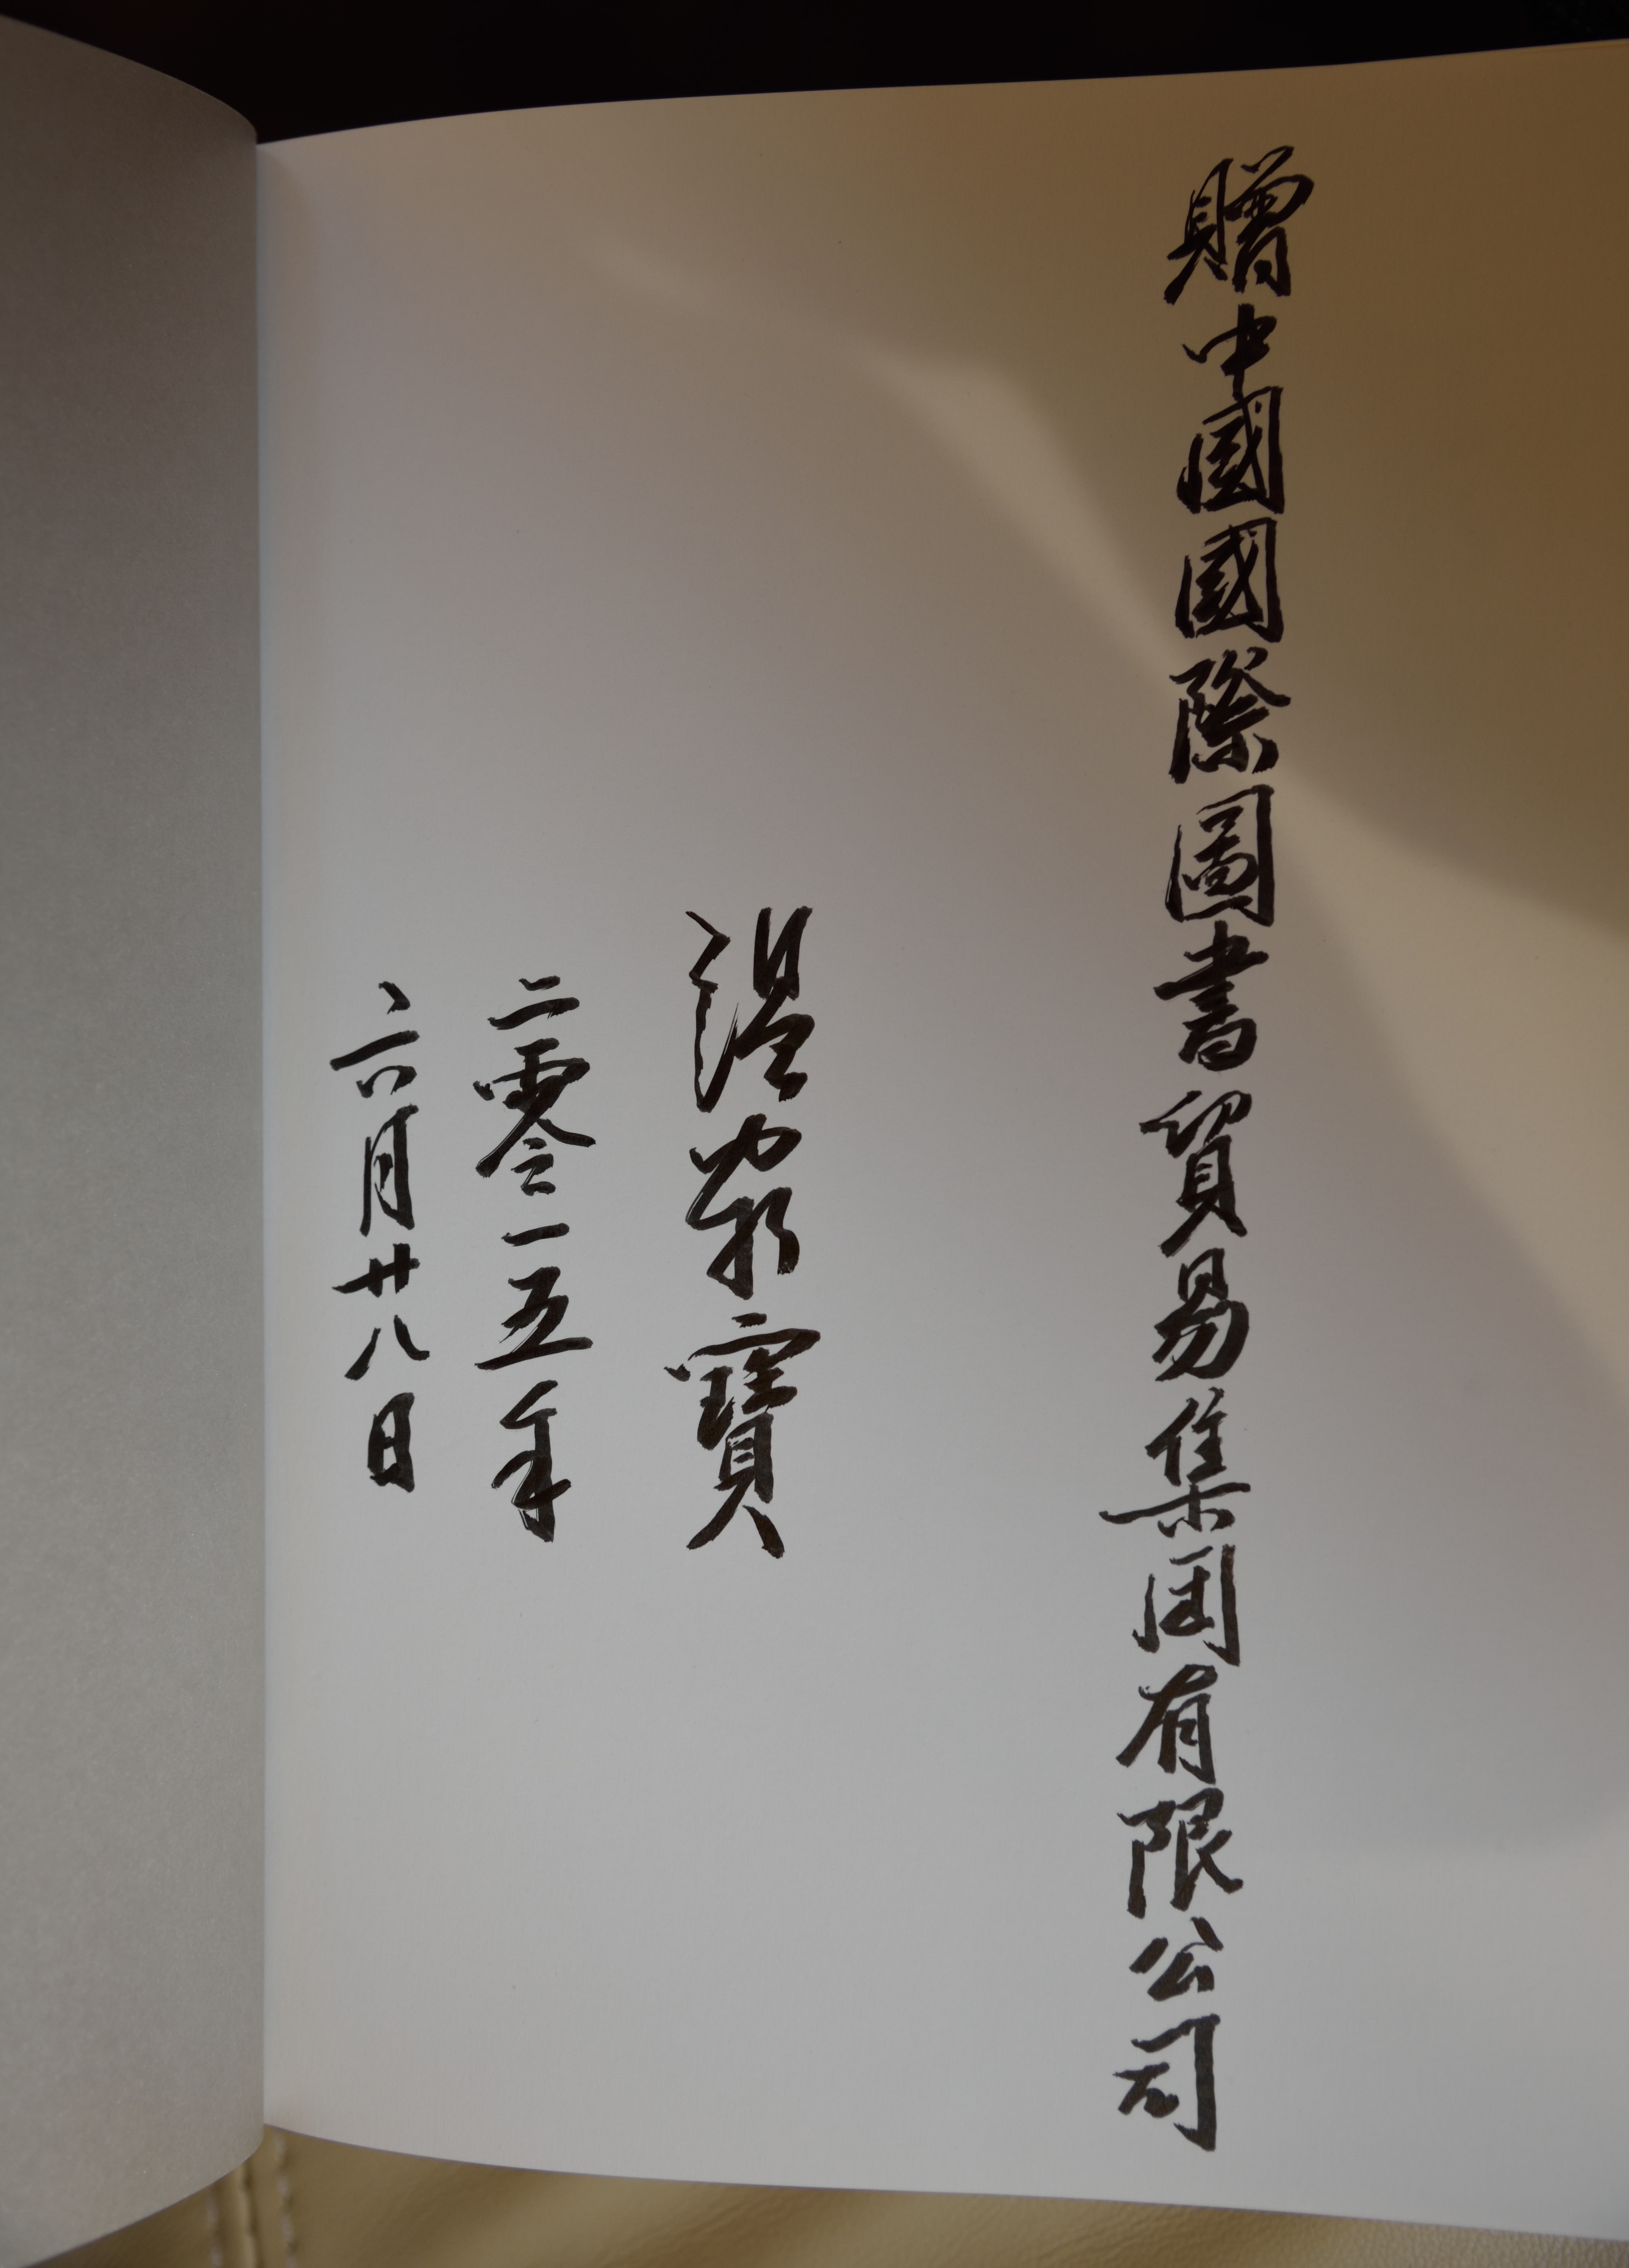 贈中國國際圖書貿易集团有限公司
温家寳
二零一五年
六月廿八日